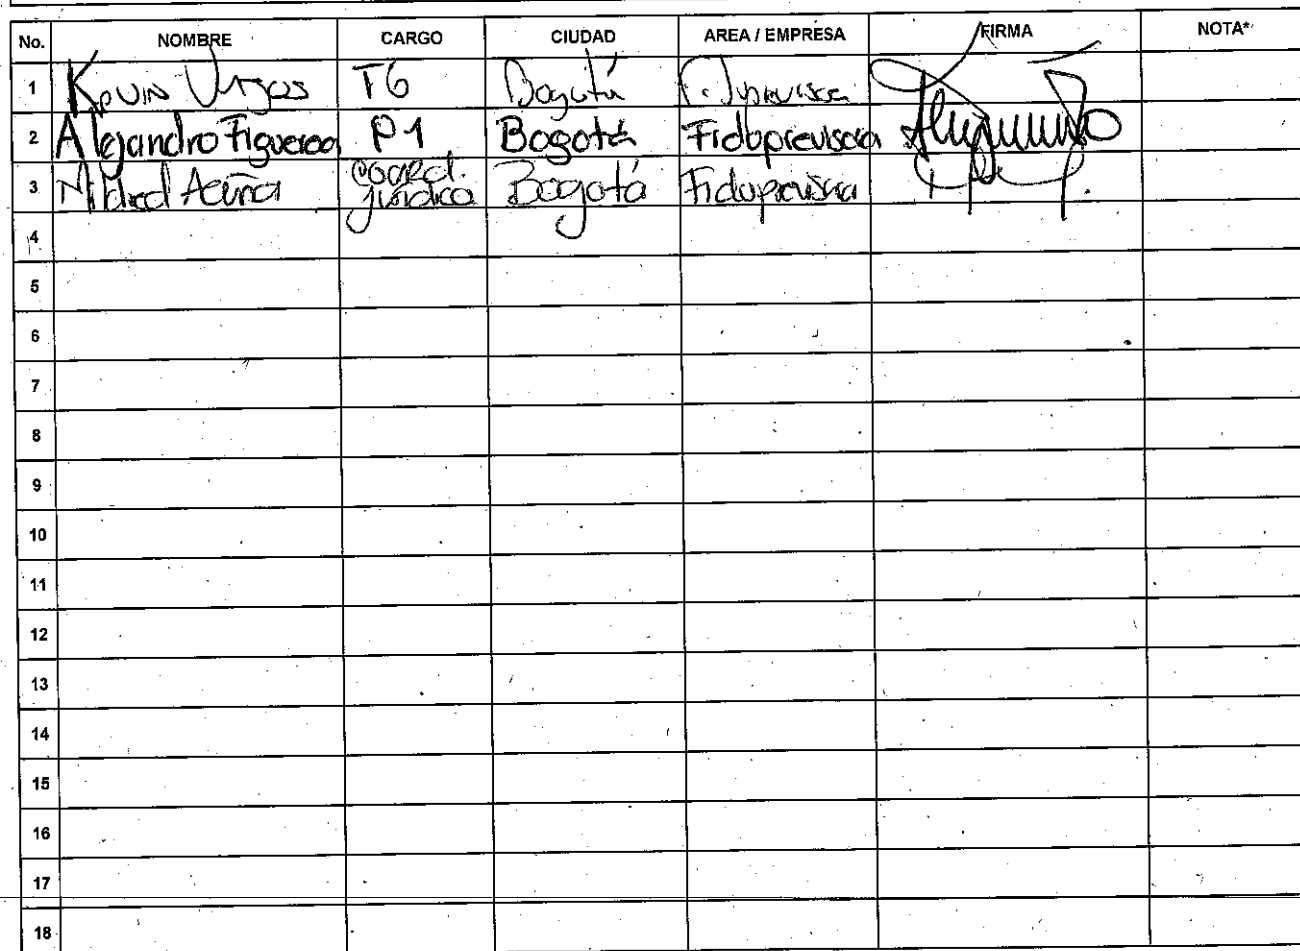 No. NOMBRE CARGO CIUDAD AREA / EMPRESA FIRMA NOTA*
1 Kevin Vargas T6 Bogotá Fiduprevisora
2 Alejandro Figueroa P1 Bogotá Fiduprevisora
3 Mildred Acuña Coord. Jurídica Bogotá Fiduprevisora
4
5
6
7
8
9
10
11
12
13
14
15
16
17
18